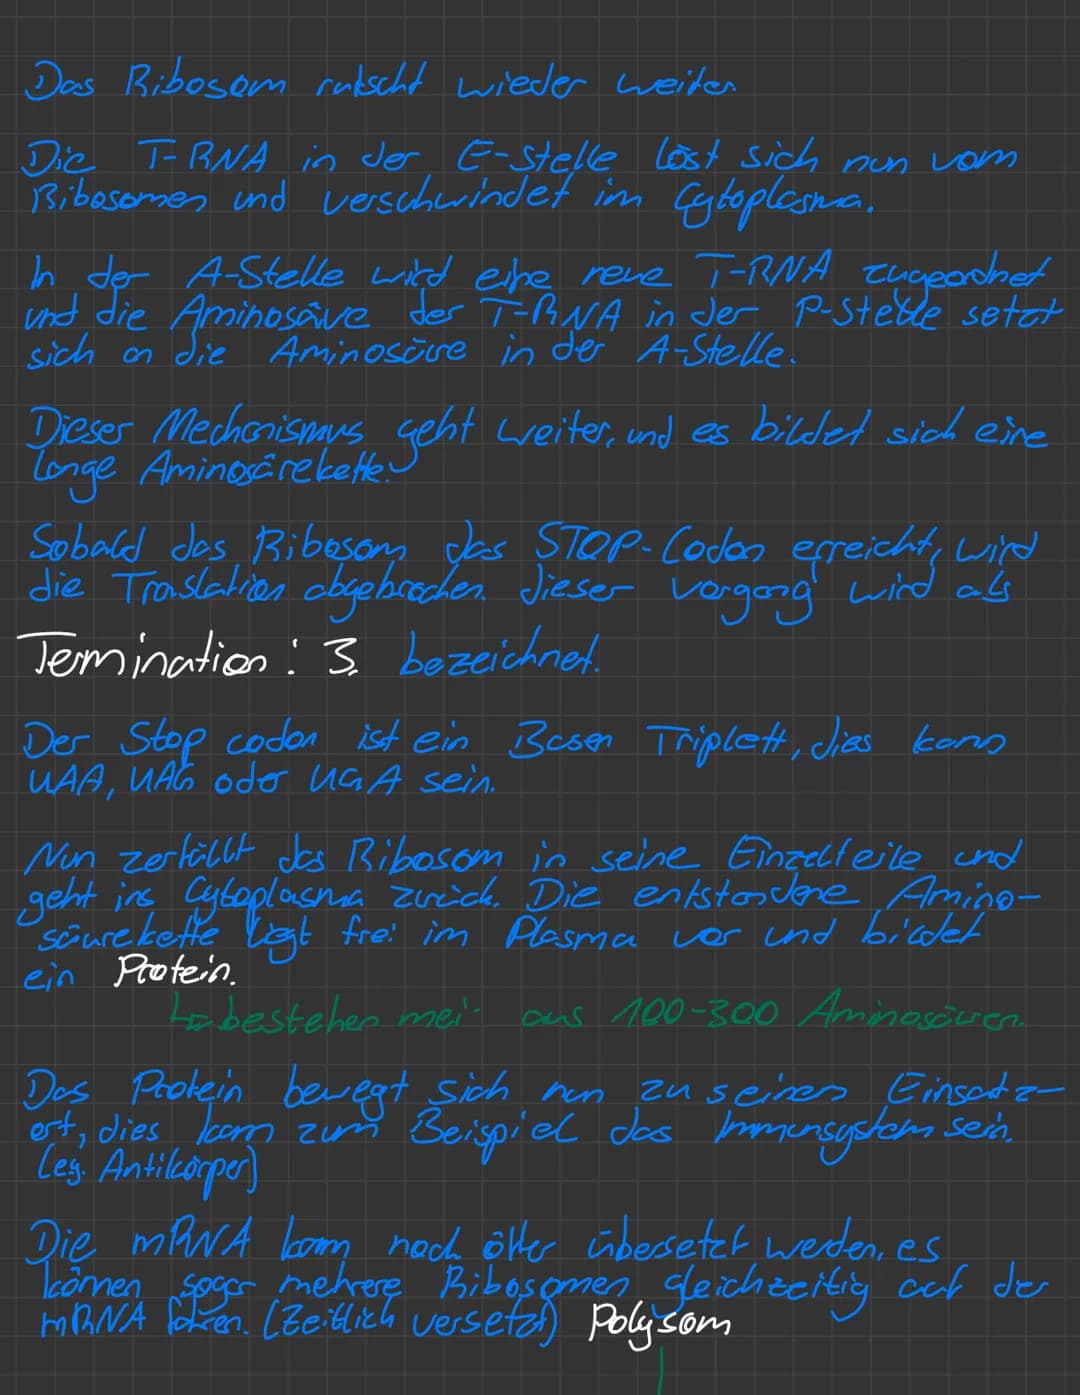 Das Ribosom rutscht wieder weiter.
Die T-RNA in der E-Stelle löst sich nun vom
Ribosomen und verschwindet im Cytoplasma.
In der A-Stelle wird eine neue T-RNA zugeordnet
und die Aminosäure der T-RNA in der P-Stelle setzt
sich an die Aminosäure in der A-Stelle.
Dieser Mechanismus geht weiter, und es bildet sich eine
lange Aminosärekette.
Sobald das Ribosom das STOP-Codon erreicht, wird
die Translation abgebrochen. dieser Vorgang wird als
Termination: 3. bezeichnet.
Der Stop codon ist ein Basen Triplett, dies kann
UAA, UAG oder UGA sein.
Nun zerfällt das Ribosom in seine Einzelteile und
geht ins Cytoplasma zurück. Die entstandene Amino-
säurekette liegt frei im Plasma vor und bildet
ein Protein.
↳ bestehen mei. aus 100-300 Aminosäuren.
Das Protein bewegt sich nun zu seinen Einsatz-
ort, dies kann zum Beispiel das Immunsystem sein.
(eg. Antikörper)
Die mRNA kann noch öfter übersetzt werden, es
können sogar mehrere Ribosomen gleichzeitig auf der
mRNA fahren. (Zeitlich versetzt) Polysom